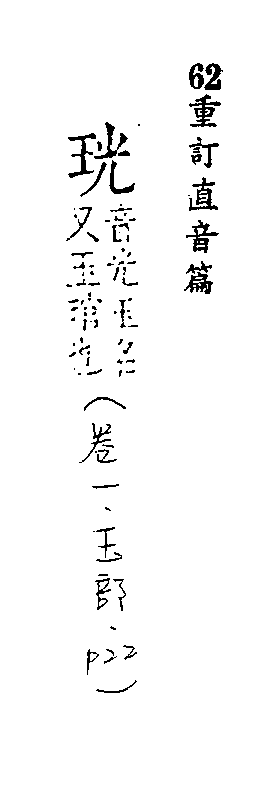 62重訂直音篇
珖音光玉名
又玉琯也
(卷一、玉部、p22)